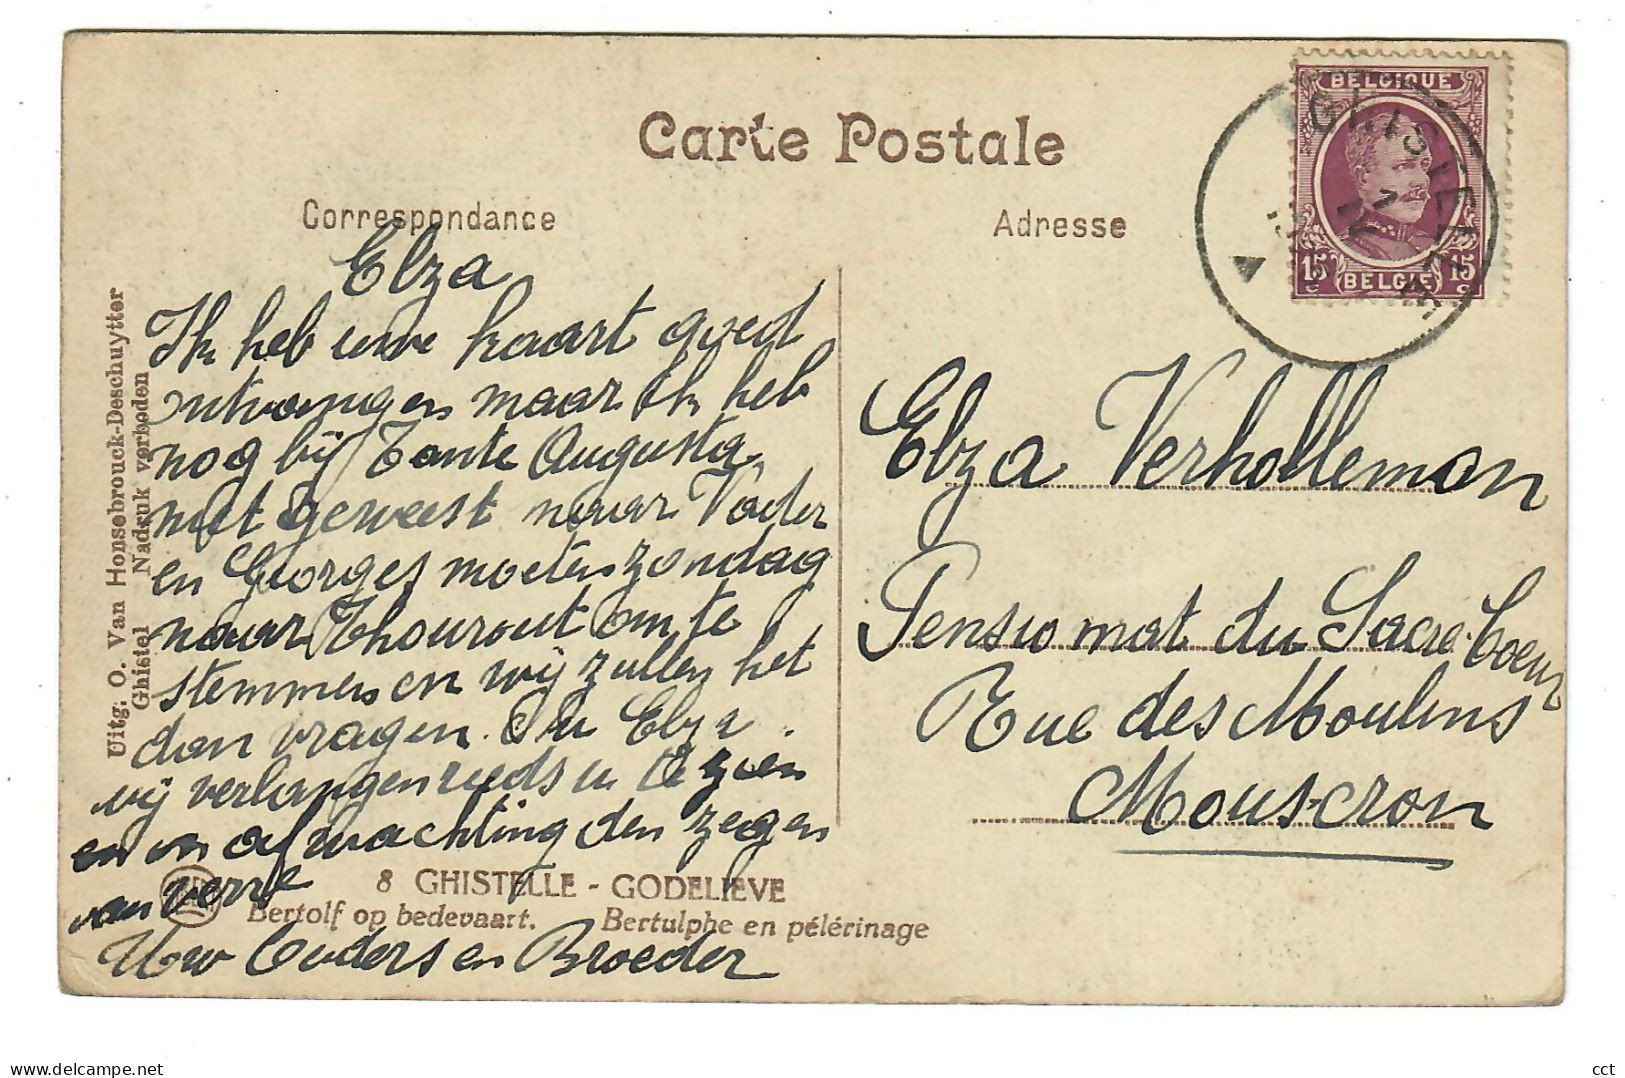 BELGIQUE
GHISTELLE
15 15
BELGIË
Carte Postale
Correspondance
Adresse
Uitg: O. Van Honsebrouck-Deschuytter
Ghistel Nadruk verboden
Elza
Ik heb uwe kaart goed
ontvangen maar ik heb
nog bij Tante Augusta
niet geweest naar Vader
en Georges moeten zondag
naar Thourout om te
stemmen en wij zullen het
dan vragen. Elza.
wij verlangen reeds u te zien
en in afwachting den zegen
van verre
Uw Ouders en Broeder
Elza Verholleman
Pensionnat du Sacré-Coeur
Rue des Moulins
Mouscron
8 GHISTELLE - GODELIEVE
Bertolf op bedevaart. Bertulphe en pélérinage
www.delcampe.net
cct